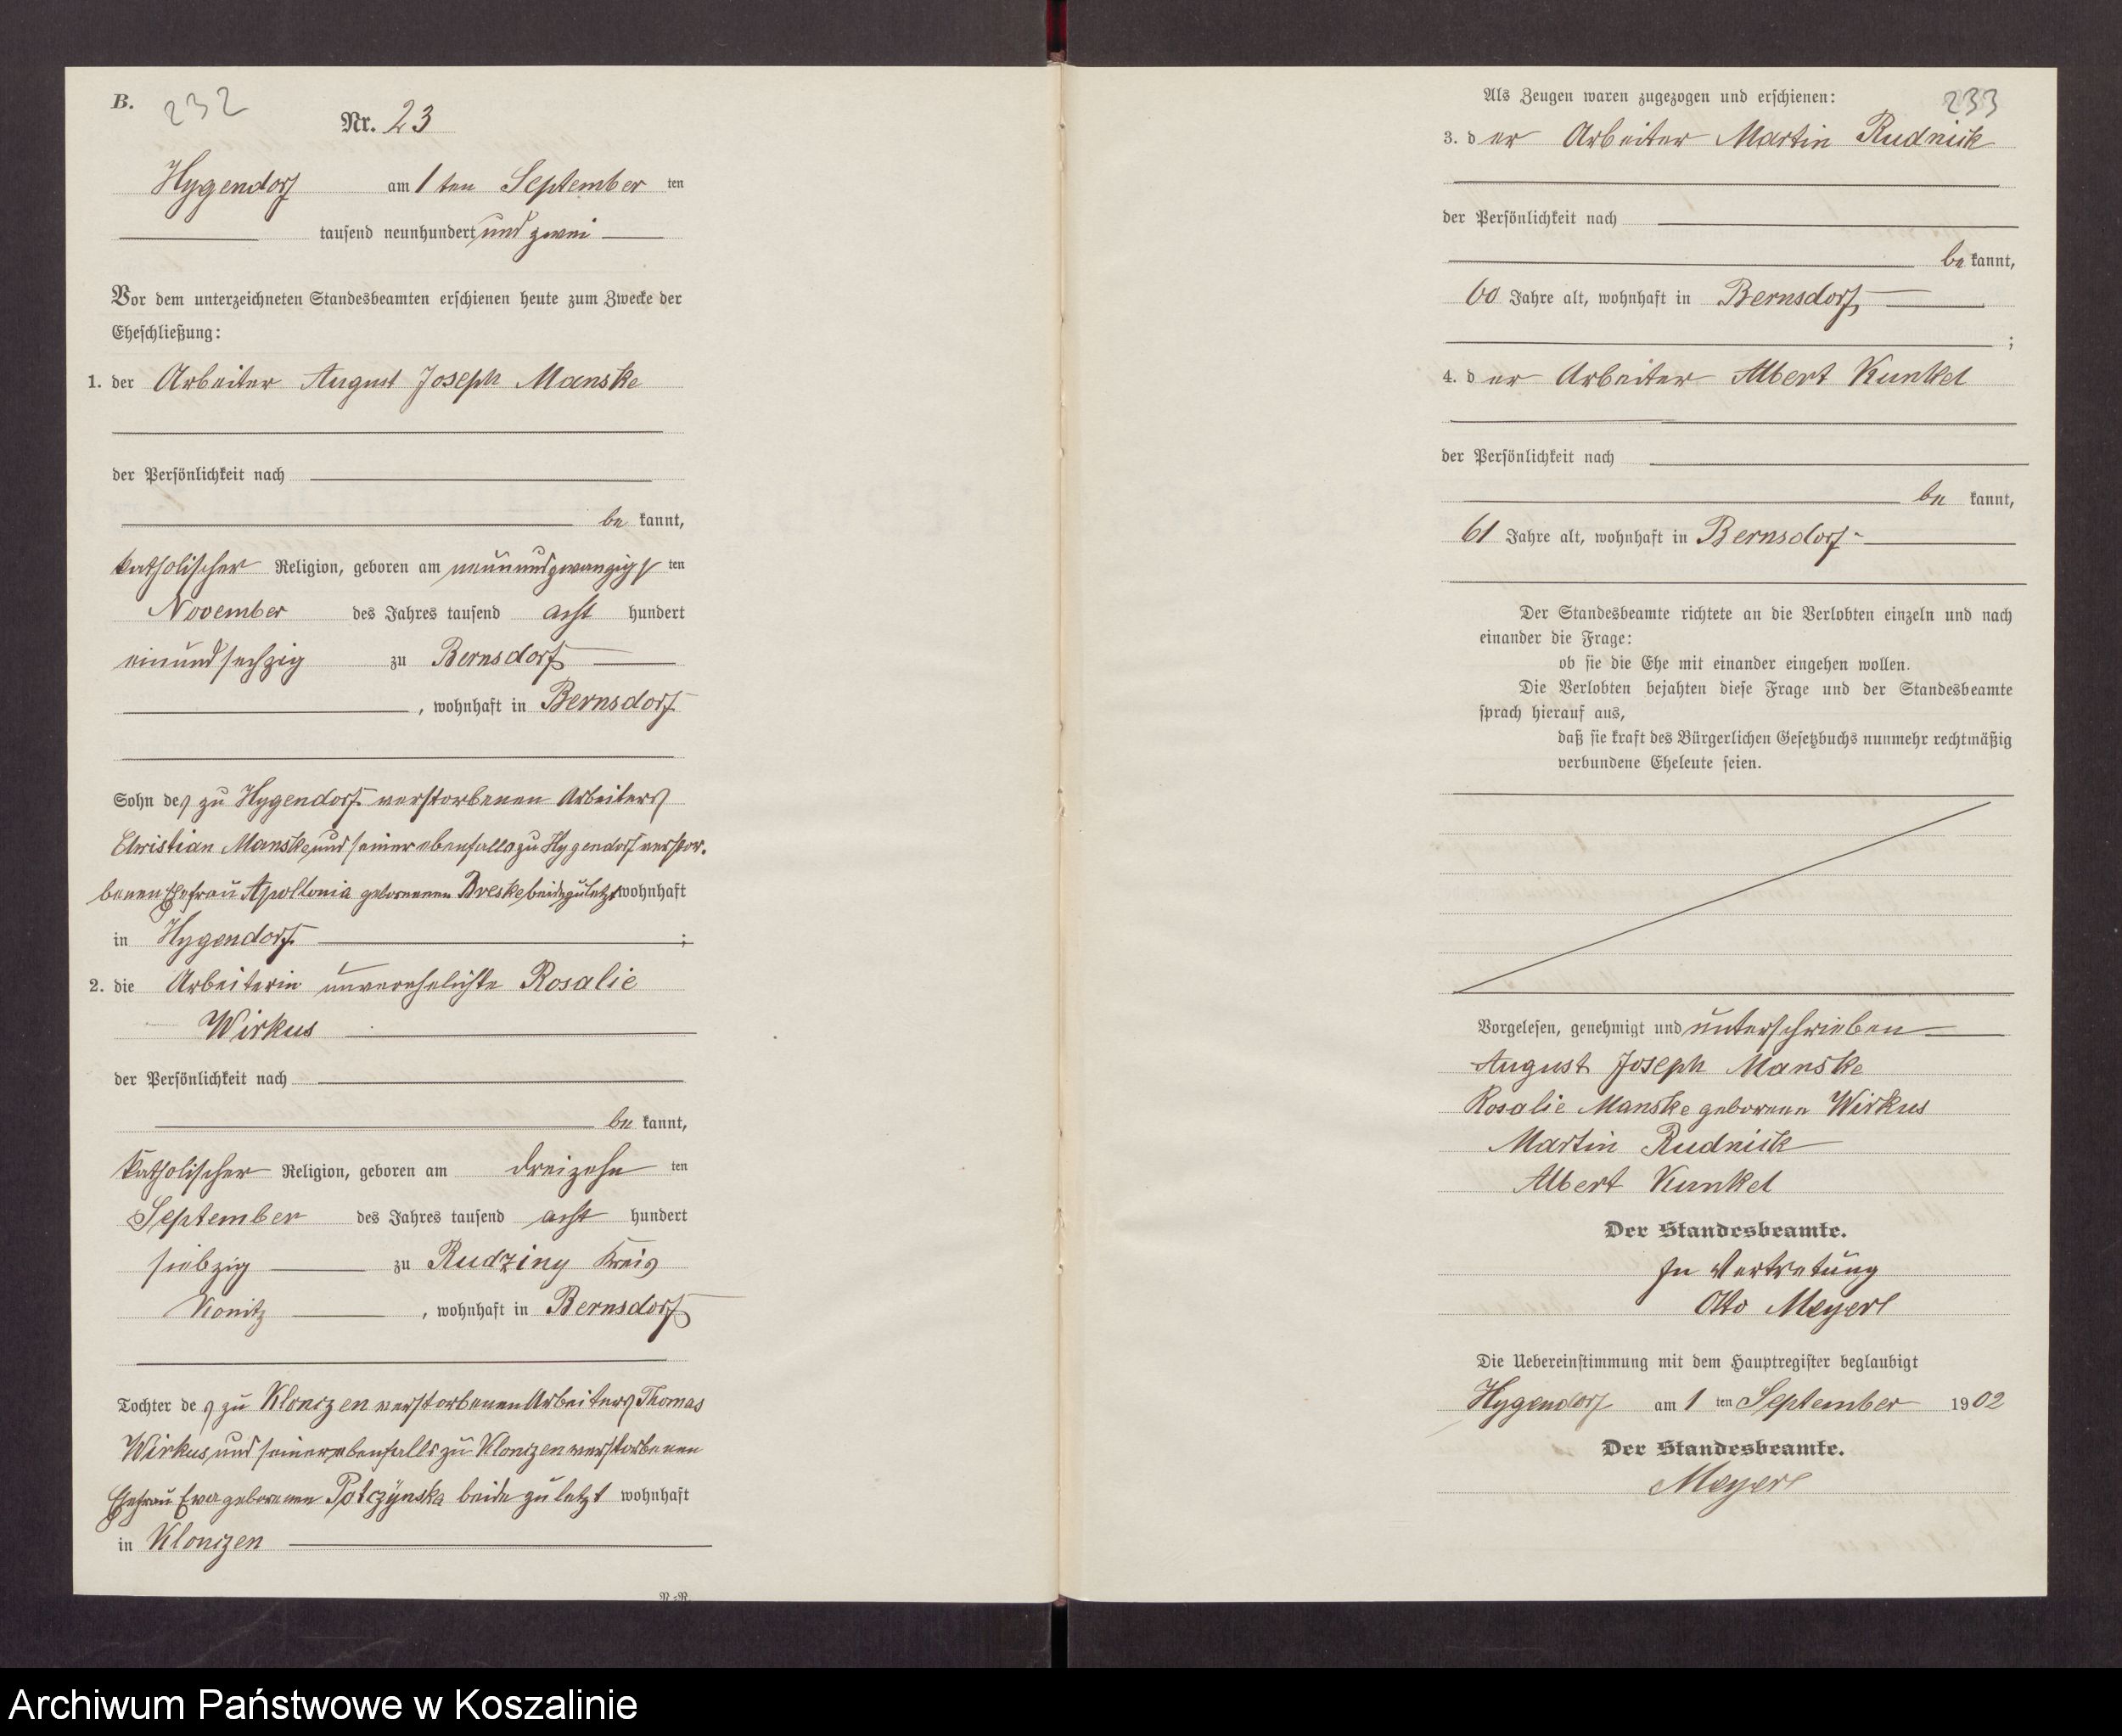 B.
232
Nr. 23
Hygendorf am 1 ten September ten
tausend neunhundert und zwei
Vor dem unterzeichneten Standesbeamten erschienen heute zum Zwecke der
Eheschließung:
1. der Arbeiter August Joseph Manske
der Persönlichkeit nach
be kannt,
katholischer Religion, geboren am neunundzwanzigs ten
November des Jahres tausend acht hundert
einundsechzig zu Bernsdorf
, wohnhaft in Bernsdorf
Sohn des zu Hygendorf verstorbenen Arbeiters
Christian Manske und seiner ebenfalls zu Hygendorf verstor-
benen Ehefrau Apollonia geborenen Breske beide zuletzt wohnhaft
in Hygendorf ;
2. die Arbeiterin unverehelichte Rosalie
Wirkus
der Persönlichkeit nach
be kannt,
katholischer Religion, geboren am dreizehn ten
September des Jahres tausend acht hundert
siebzig zu Rudziny Kreis
Konitz , wohnhaft in Bernsdorf
Tochter des zu Klonczen verstorbenen Arbeiters Thomas
Wirkus und seiner ebenfalls zu Klonczen verstorbenen
Ehefrau Eva geborenen beide zuletzt wohnhaft
in Klonczen
N-N.
Als Zeugen waren zugezogen und erschienen:
233
3. d er Arbeiter Martin Rudnick
der Persönlichkeit nach
be kannt,
60 Jahre alt, wohnhaft in Bernsdorf
;
4. d er Arbeiter Albert Kunkel
der Persönlichkeit nach
be kannt,
61 Jahre alt, wohnhaft in Bernsdorf
Der Standesbeamte richtete an die Verlobten einzeln und nach
einander die Frage:
ob sie die Ehe mit einander eingehen wollen.
Die Verlobten bejahten diese Frage und der Standesbeamte
sprach hierauf aus,
daß sie kraft des Bürgerlichen Gesetzbuchs nunmehr rechtmäßig
verbundene Eheleute seien.
Vorgelesen, genehmigt und unterschrieben
August Joseph Manske
Rosalie Manske geborene Wirkus
Martin Rudnick
Albert Kunkel
Der Standesbeamte.
In Vertretung
Otto Meyerl
Die Uebereinstimmung mit dem Hauptregister beglaubigt
Hygendorf am 1 ten September 1902
Der Standesbeamte.
Meyerl
Archiwum Państwowe w Koszalinie